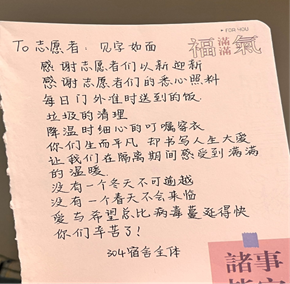 FOR YOU
福滿滿氣
To志愿者：见字如面
感谢志愿者们以新迎新
感谢志愿者们的悉心照料
每日门外准时送到的饭
垃圾的清理
降温时细心的叮嘱容衣
你们生而平凡 却书写人生大爱
让我们在隔离期间感受到满满
的温暖
没有一个冬天不可逾越
没有一个春天不会来临
爱与希望总比病毒蔓延得快
你们辛苦了！
304宿舍全体
諸事